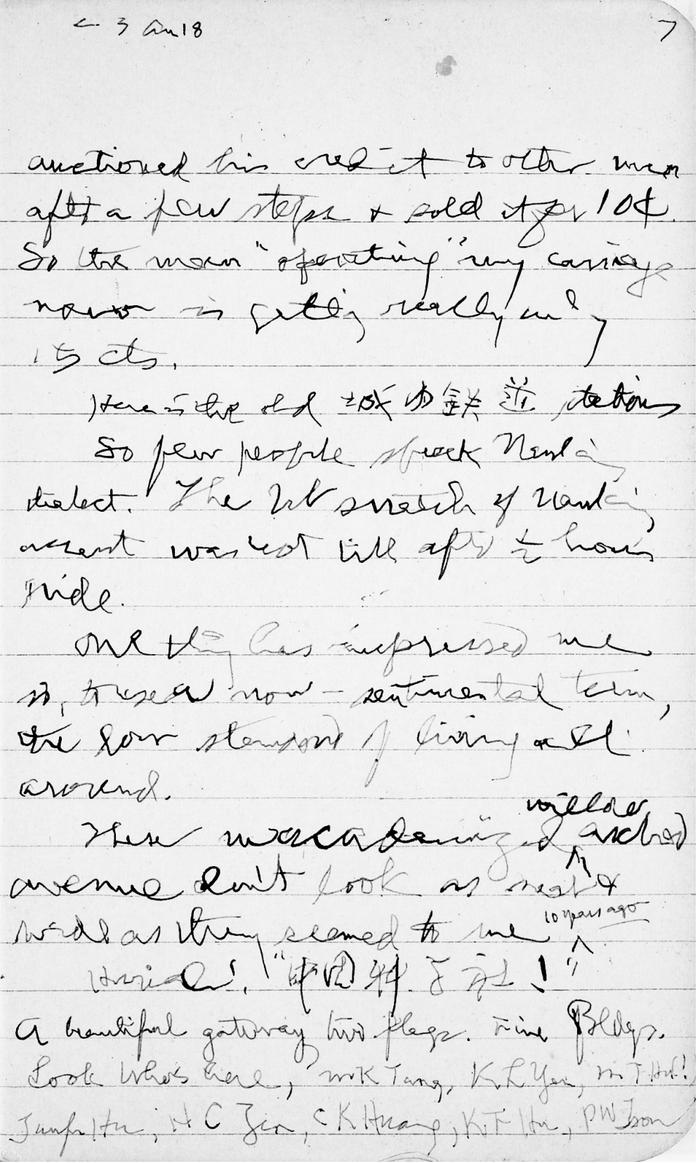 3 Au 18 7
auctioned his credit to other men
after a few steps & sold it for 10¢.
So the man "operating" my carriage
now is getting really only
15 cts.
Here is the old 城內鉄道 station
So few people speak Nanking
dialect. The 1st snatch of Nanking
accent was not till after ½ hour's
ride.
One thing has impressed me
so, to use a non-sentimental term,
the low standard of living all
around.
These macadamized willow arched
avenue don't look as neat &
wide as they seemed to me 10 years ago
Hurrah! "中國科学社!"
A beautiful gateway two flags. Fine Bldgs.
Look who's here, K Tang, K L Yen, M T Hu!
Hu, H C Zen, C K Huang, K F Hu, P W Tson